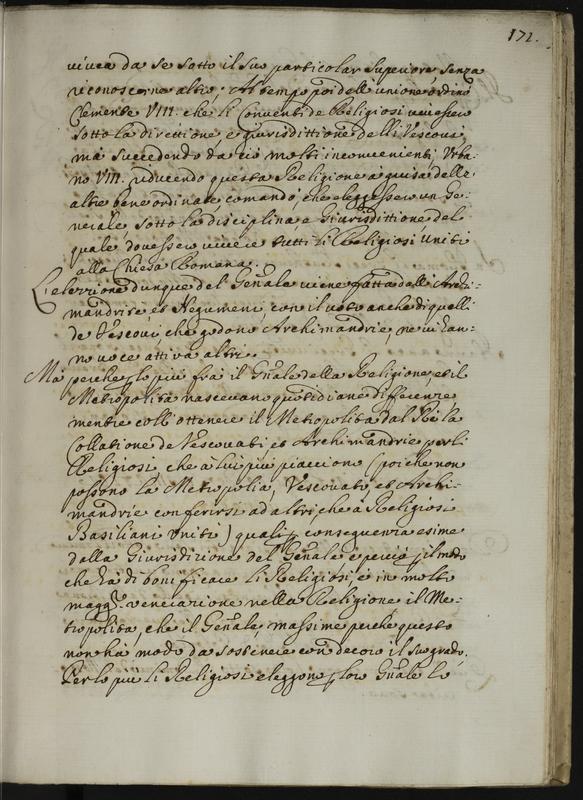 172.
viuea da se sotto il suo particolar superiore, senza
riconoscerne altro; Al tempo poi dell'unione ordinò
Clemente VIII. che li Conuenti de Religiosi uiuessero
sotto la direttione, e giurisdittione delli Vescoui,
mà succedendo da ciò molti inconuenienti, Vrba-
no VIII. riducendo questa Religione a guisa delle
altre bene ordinate comandò, che eleggessero un Ge-
nerale, sotto la disciplina, e Giurisdittione del
quale douessero uiuere tutti li Religiosi Uniti
alla Chiesa Romana.
L'elezzione dunque del Gñale uiene fatta dalli Archi-
mandrite et Hegumeni, con il uoto anche di quelli
de Vescoui, che godono Archimandrie, ne ui han-
no uoce attiua altri.
Mà perche p lo più frà il Gñale della Religione, et il
Metropolita nasceuano quotidiane differenze
mentre coll'ottenere il Metropolita dal Rè la
Collatione de Vescouati, et Archimandrie per li
Religiosi, che à lui più piacciono (poiche non
possono la Metropolia, Vescouati, et Archi-
mandrie conferirsi ad altri, che à Religiosi
Basiliani Uniti) quali p conseguenza esime
dalla Giurisdizione del Gñale, e perciò p il modo
che hà di bonificare li Religiosi, è in molta
magg.r uenerazione nella Religione il Me-
tropolita, che il Gñale, massime perche questo
non hà modo da sostenere con decoro il suo grado,
Per lo più li Religiosi eleggono p loro Gñale lo